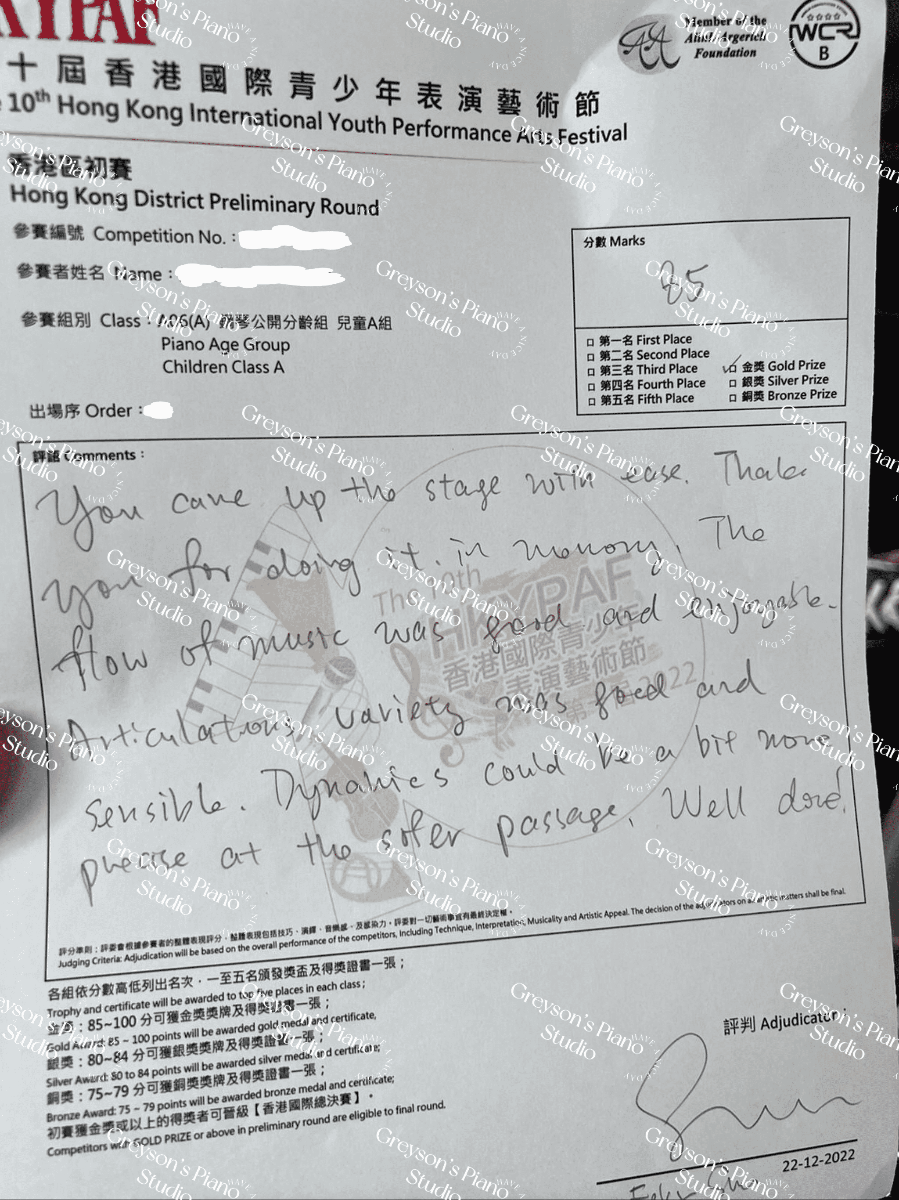 KYPAF
Member of the
Foundation
WCR
B
十屆香港國際青少年表演藝術節
10th Hong Kong International Youth Performance Arts Festival
香港區初賽
Hong Kong District Preliminary Round
參賽編號 Competition No. :
參賽者姓名 Name :
參賽組別 Class : A06(A) 鋼琴公開分齡組 兒童A組
Piano Age Group
Children Class A
出場序 Order :
分數 Marks
85
□ 第一名 First Place
□ 第二名 Second Place
□ 第三名 Third Place
□ 第四名 Fourth Place
□ 第五名 Fifth Place
✓□ 金獎 Gold Prize
□ 銀獎 Silver Prize
□ 銅獎 Bronze Prize
評語 Comments :
You came up the stage with ease. Thank
you for doing it in memory. The
flow of music was good and enjoyable.
Articulations variety was good and
sensible. Dynamics could be a bit more
precise at the softer passage. Well done!
The 10th
HKYPAF
香港國際青少年
表演藝術節
2022
評分準則：評委會根據參賽者的整體表現評分，整體表現包括技巧、演繹、音樂感、及感染力。評委對一切藝術事宜有最終決定權。
Judging Criteria: Adjudication will be based on the overall performance of the competitors, including Technique, Interpretation, Musicality and Artistic Appeal. The decision of the adjudicators on all artistic matters shall be final.
各組依分數高低列出名次，一至五名頒發獎盃及得獎證書一張；
Trophy and certificate will be awarded to top five places in each class;
金獎：85~100 分可獲金獎獎牌及得獎證書一張；
Gold Award: 85 ~ 100 points will be awarded gold medal and certificate,
銀獎：80~84 分可獲銀獎獎牌及得獎證書一張；
Silver Award: 80 to 84 points will be awarded silver medal and certificate;
銅獎：75~79 分可獲銅獎獎牌及得獎證書一張；
Bronze Award: 75 ~ 79 points will be awarded bronze medal and certificate;
初賽獲金獎或以上的得獎者可晉級【香港國際總決賽】。
Competitors with GOLD PRIZE or above in preliminary round are eligible to final round.
評判 Adjudicator :
22-12-2022
Greyson's Piano Studio
HAVE A NICE DAY